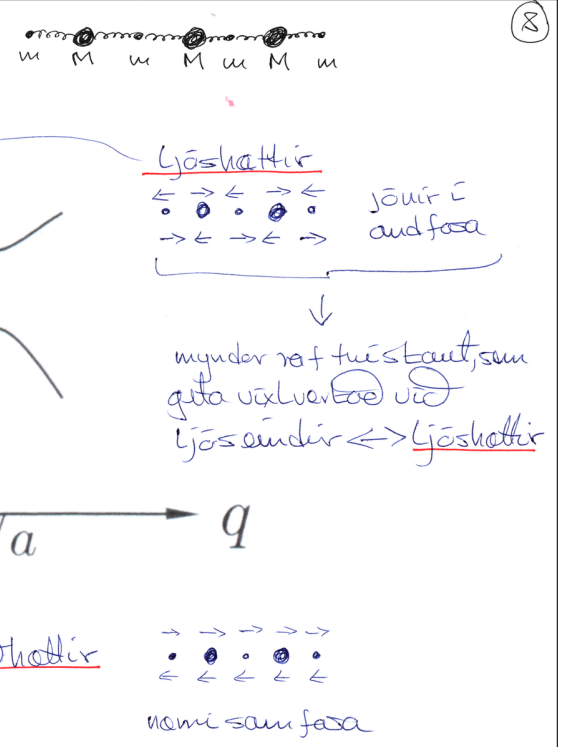 8
m M m M m M m
Ljóshættir
jónir í
andfasa
myndar raf tvískaut, sem
geta víxlverkað við
ljóseindir <-> Ljóshættir
q
a
hættir
næmi samfasa